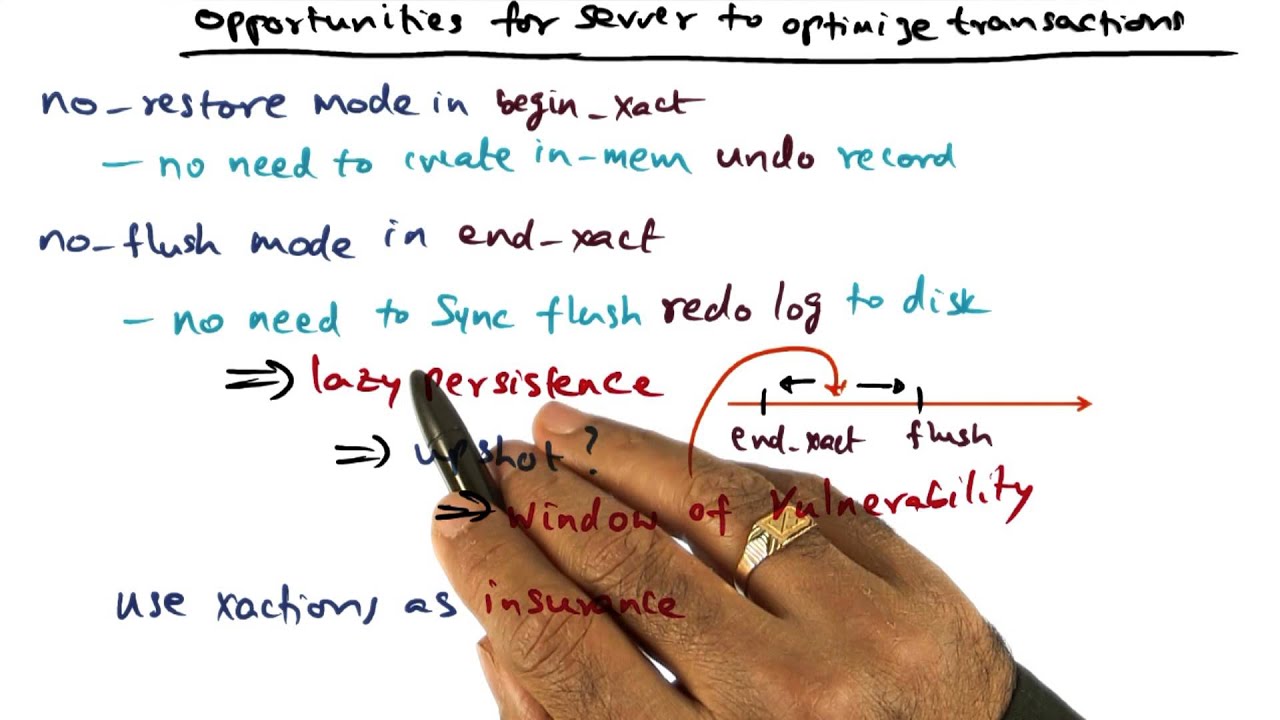 opportunities for server to optimize transactions
no_restore mode in begin_xact
– no need to create in-mem undo record
no_flush mode in end_xact
– no need to Sync flush redo log to disk
⇒ lazy persistence
end_xact flush
⇒ upshot?
⇒ window of vulnerability
use xactions as insurance